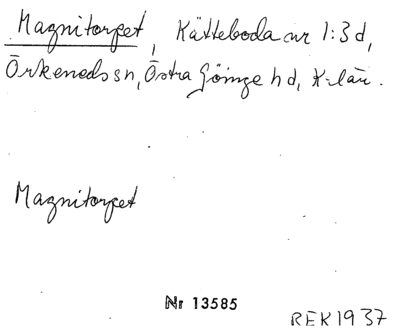 Magnitorpet, Kätteboda nr 1:3 d,
Örkeneds sn, Östra Göinge hd, K-län.
Magnitorpet
Nr 13585
REK 1937